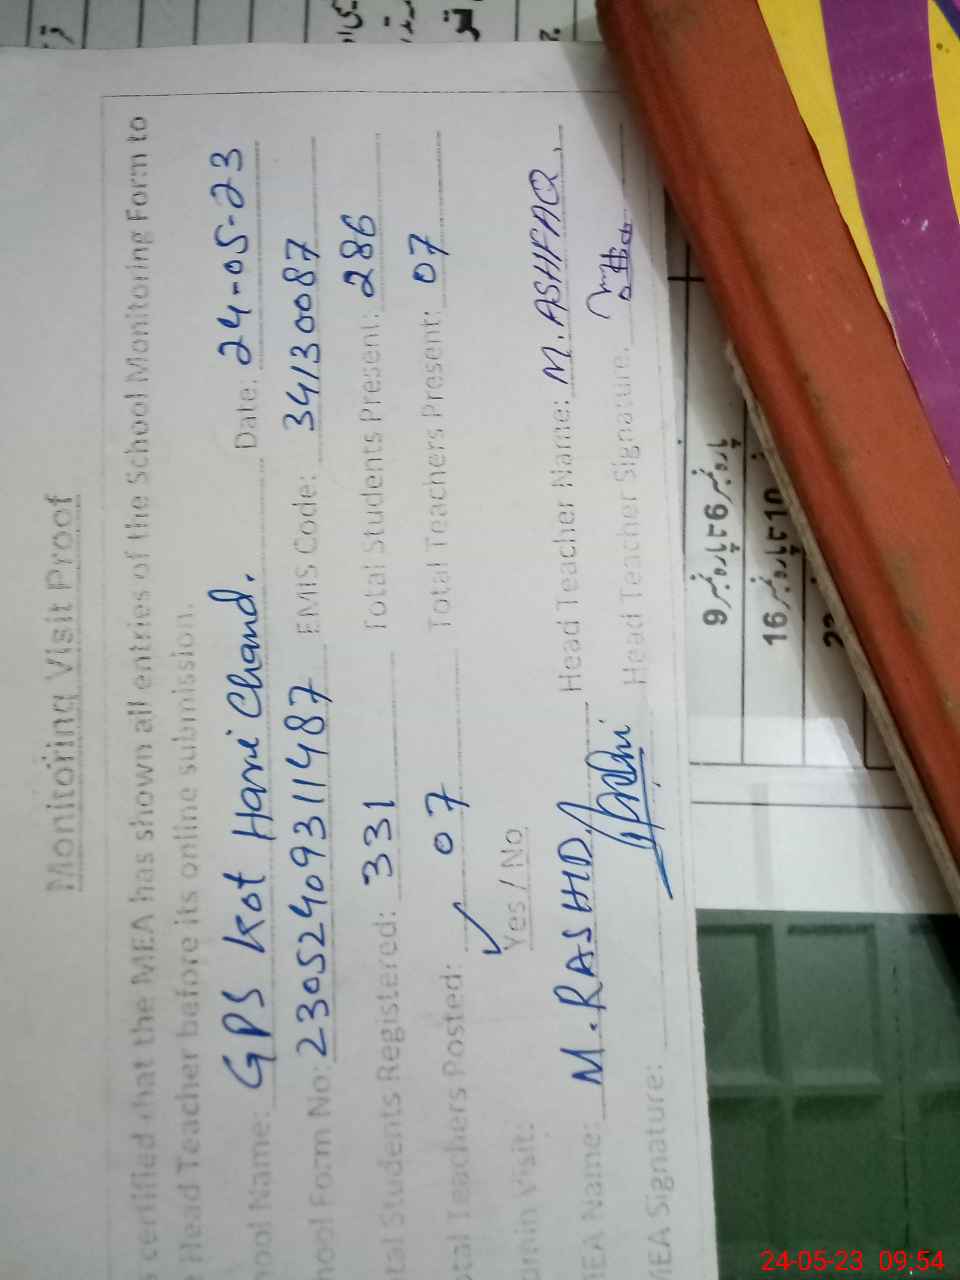 Monitoring Visit Proof
certified that the MEA has shown all entries of the School Monitoring Form to
Head Teacher before its online submission.
hool Name: GPS Kot Harri Chand. Date: 24-05-23
hool Form No: 23052409311487 EMIS Code: 34130087
tal Students Registered: 331 Total Students Present: 286
otal Teachers Posted: 07 Total Teachers Present: 07
dmin Visit: Yes / No
MEA Name: M. RASHID Head Teacher Name: M. ASHFAQ.
MEA Signature: Head Teacher Signature:
9
16
24-05-23 09:54